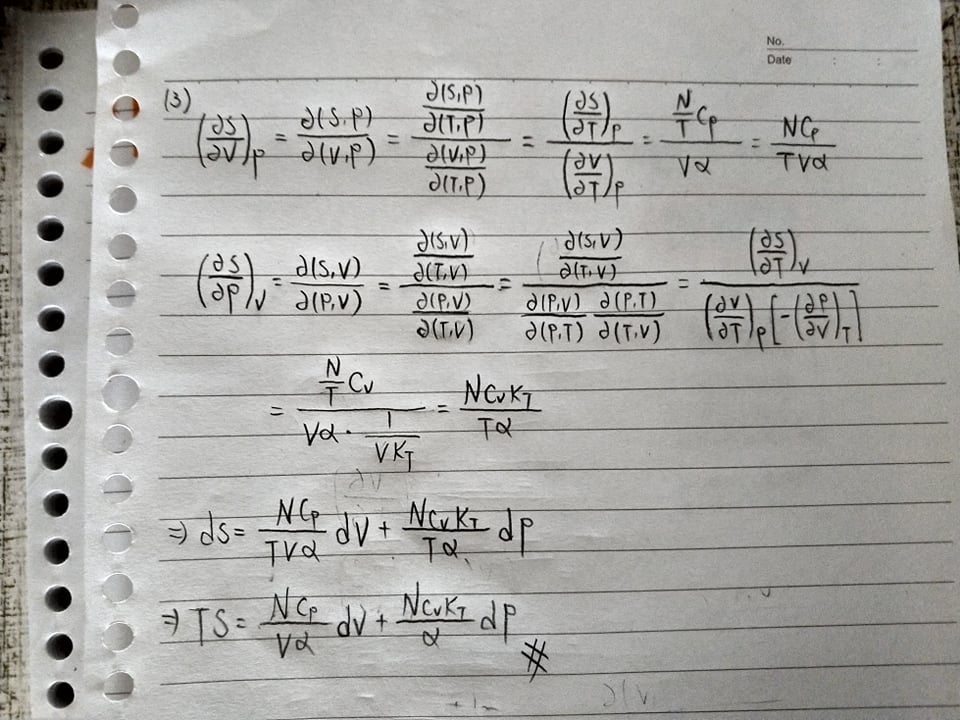 No.
Date : :
(3) (∂S/∂V)_P = ∂(S,P)/∂(V,P) = [∂(S,P)/∂(T,P)]/[∂(V,P)/∂(T,P)] = (∂S/∂T)_P/(∂V/∂T)_P = (N/T C_P)/(Vα) = NC_P/(TVα)
(∂S/∂P)_V = ∂(S,V)/∂(P,V) = [∂(S,V)/∂(T,V)]/[∂(P,V)/∂(T,V)] = [∂(S,V)/∂(T,V)]/[∂(P,V)/∂(P,T) ∂(P,T)/∂(T,V)] = (∂S/∂T)_V/((∂V/∂T)_P[-(∂P/∂V)_T])
= (N/T C_V)/(Vα · 1/(VK_T)) = NC_VK_T/(Tα)
⇒ dS = NC_P/(TVα) dV + NC_VK_T/(Tα) dP
⇒ TS = NC_P/(Vα) dV + NC_VK_T/α dP #